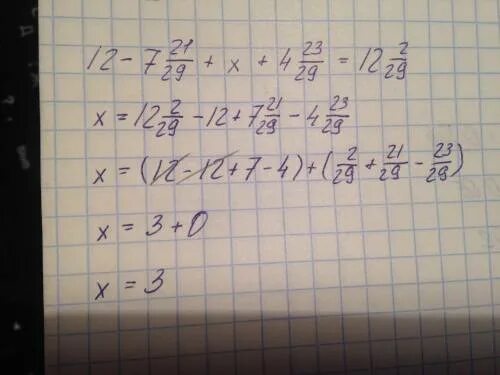 12 - 7 21/29 + x + 4 23/29 = 12 2/29
x = 12 2/29 - 12 + 7 21/29 - 4 23/29
x = (12 - 12 + 7 - 4) + (2/29 + 21/29 - 23/29)
x = 3 + 0
x = 3